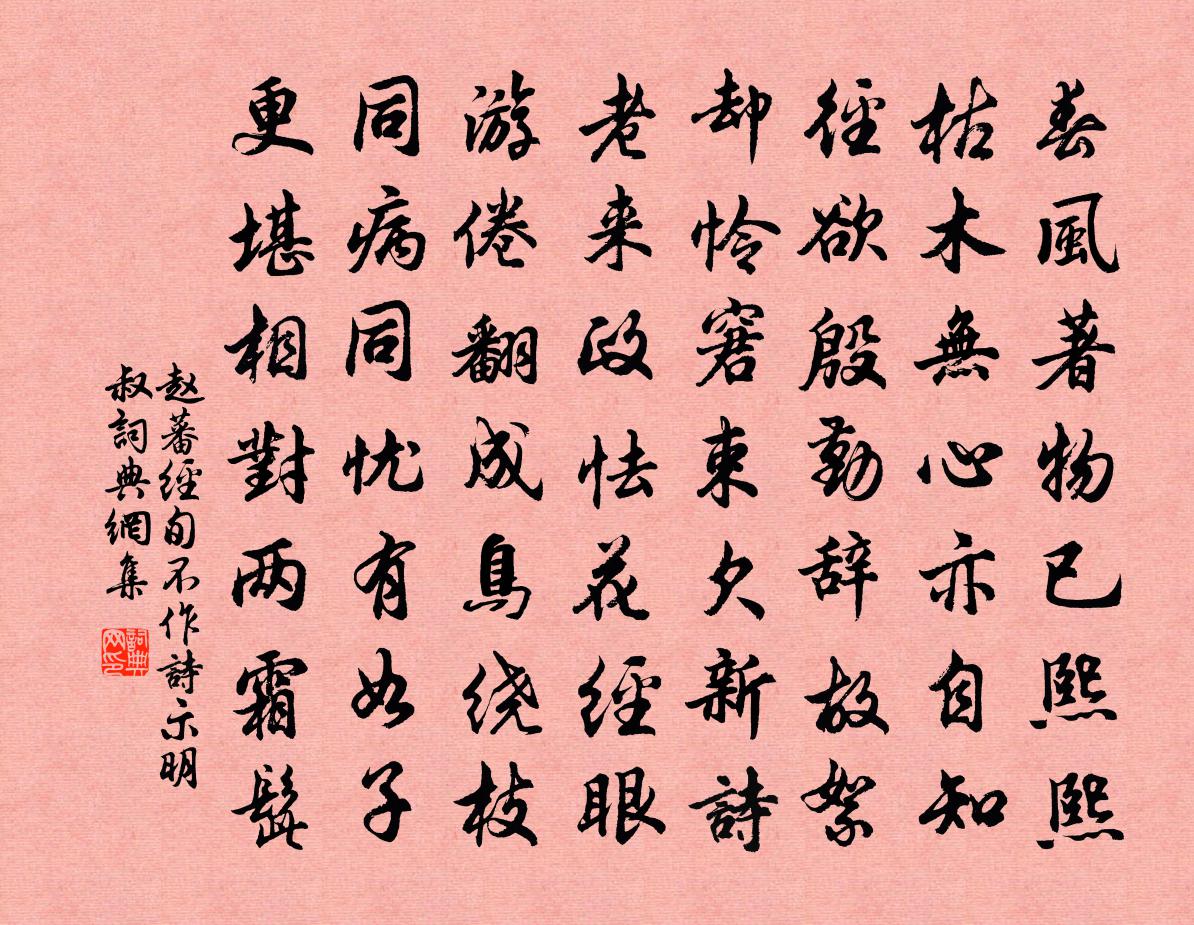 春風著物已熙熙
枯木無心亦自知
徑欲殷勤辞故絮
却怜窘束欠新詩
老来政怯花經眼
游倦翻成鳥绕枝
同病同忧有如子
更堪相對两霜髭
赵蕃經旬不作詩示明
叔詞典網集
詞典网印